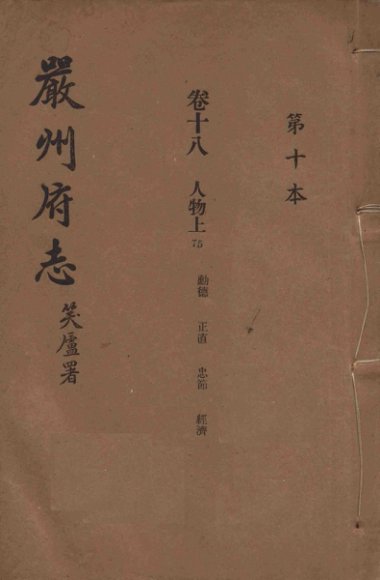 第十本
卷十八 人物上 75
勳德 正直 忠節 經濟
嚴州府志
笑廬署